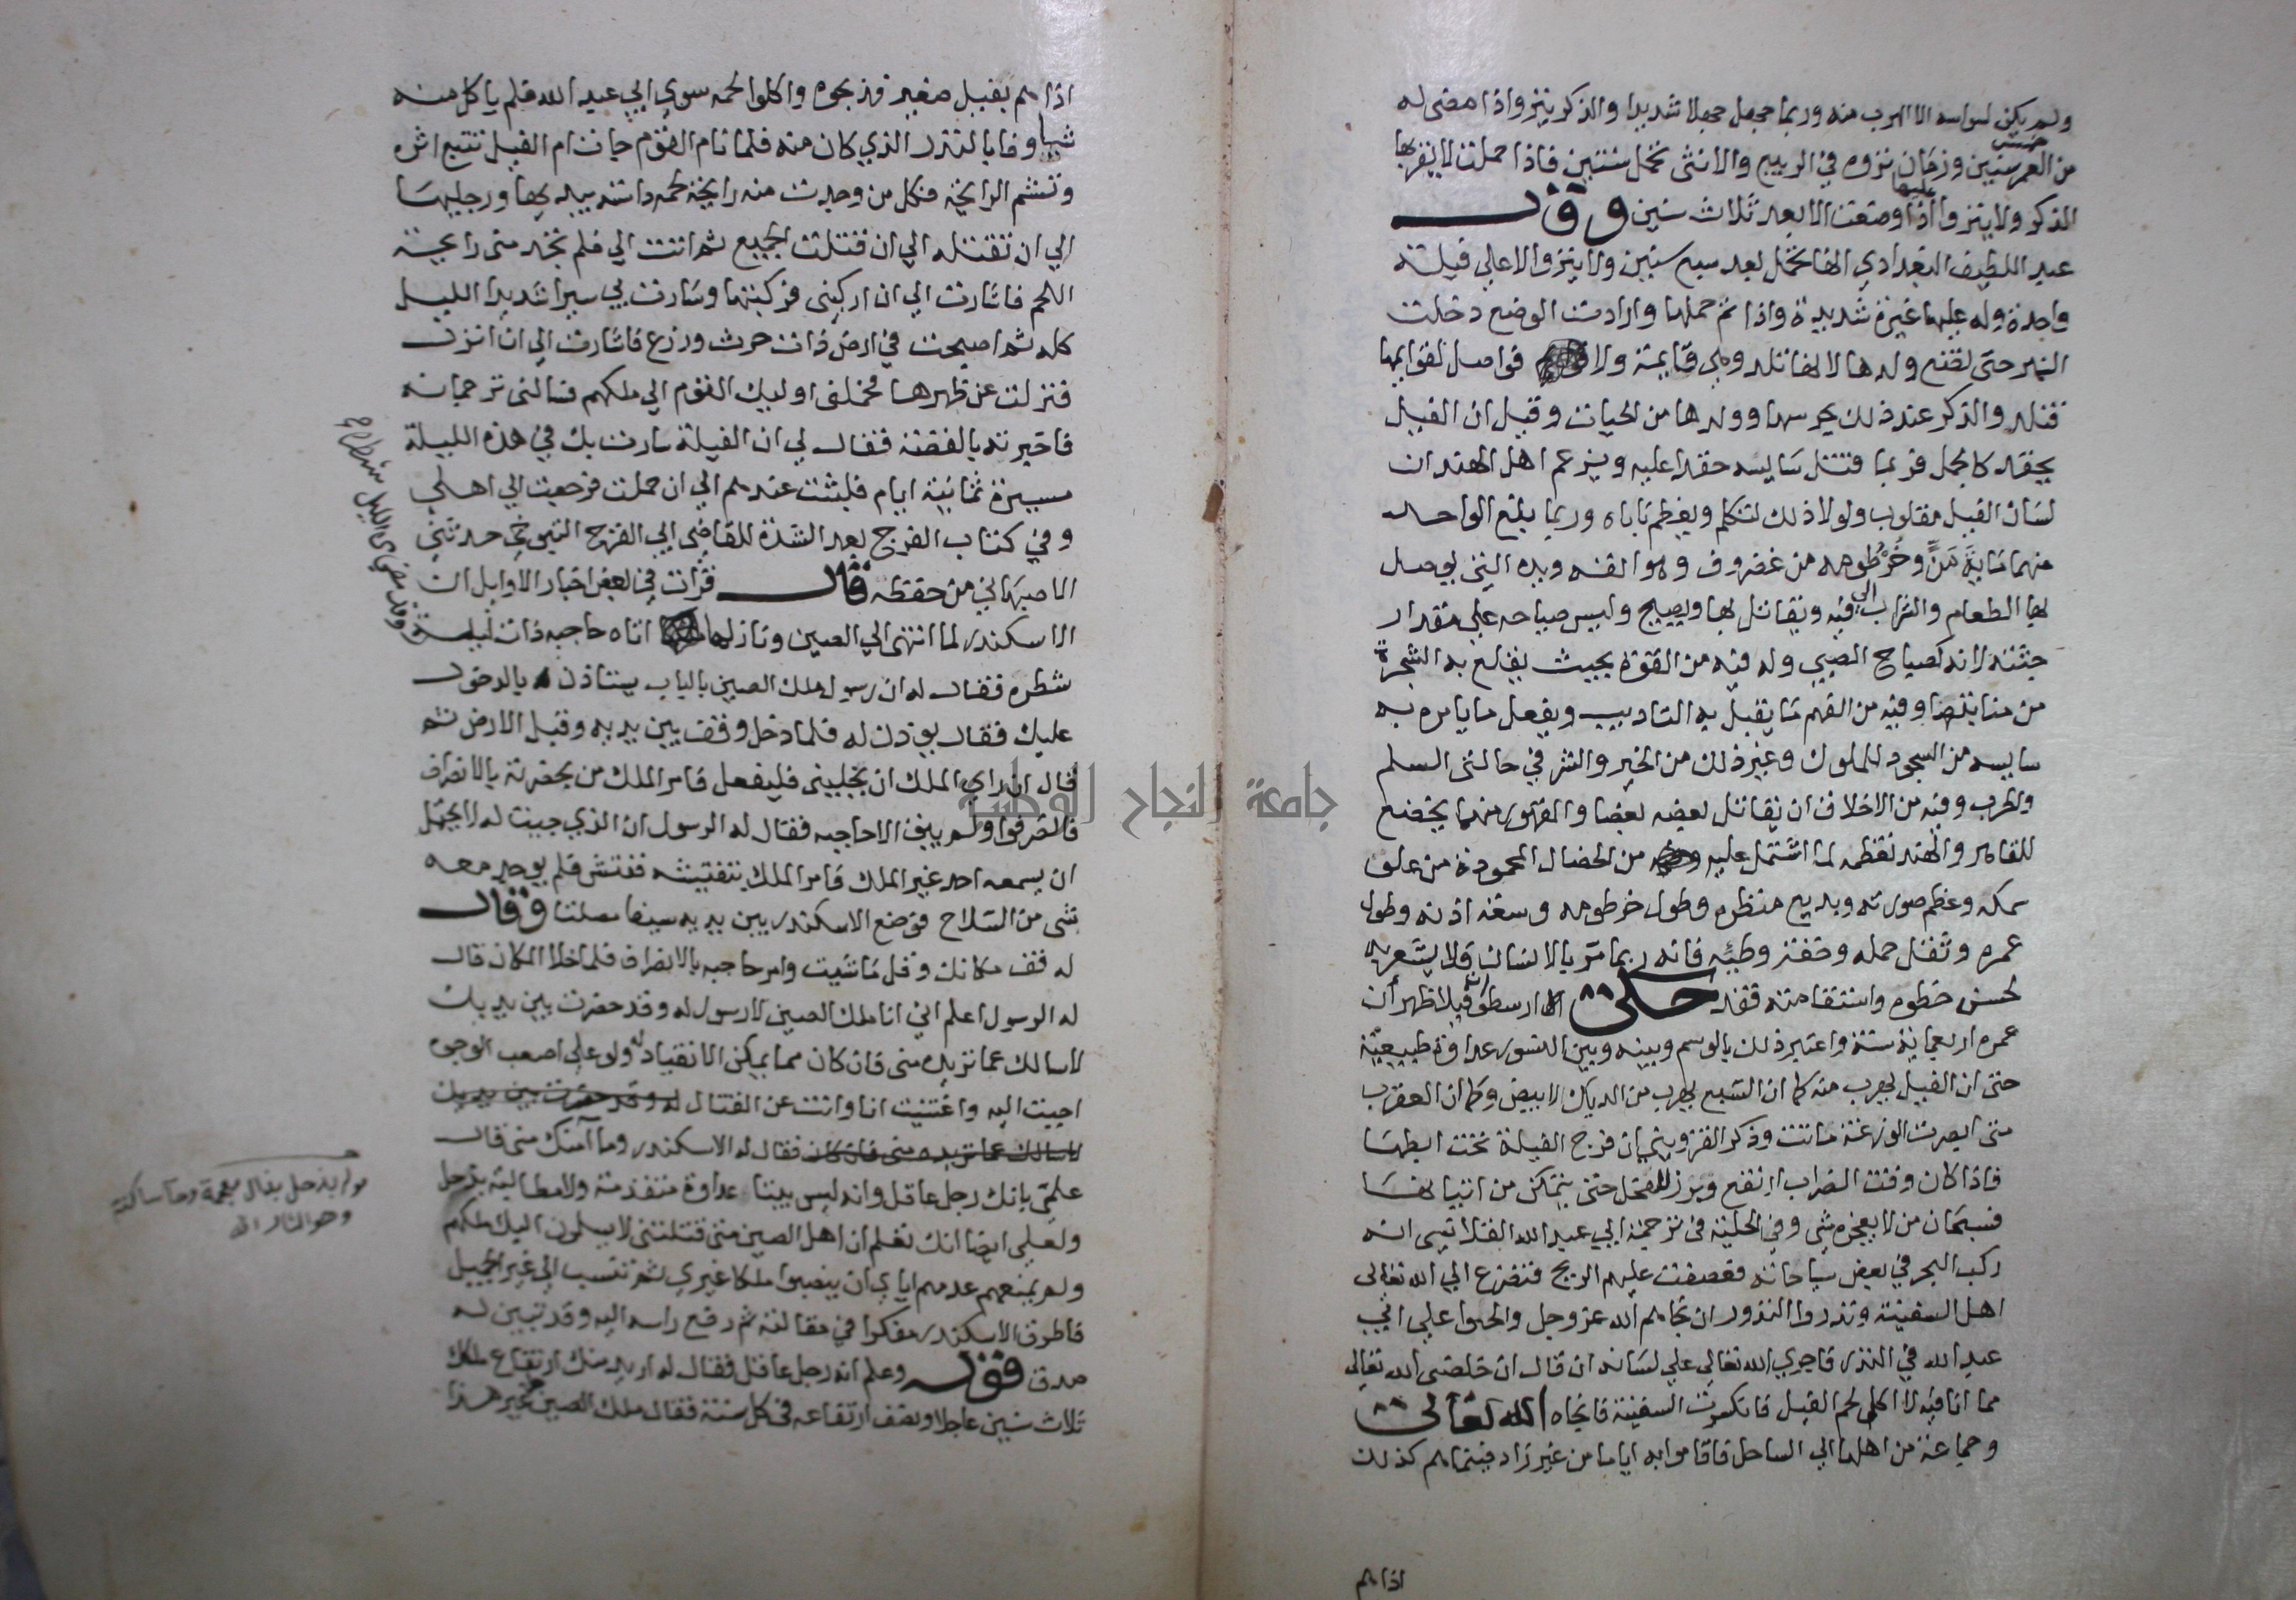 ولم يكن لسواسه الا الهرب منه وربما جهل جهلا شديدا والذكر ينزو اذا مضى له
من العمر خمس سنين وزمان نزوه في الربيع والانثى تحمل سنتين فاذا حملت لا يقربها
الذكر ولا ينزوا عليها اذا وضعت الا بعد ثلاث سنين وقال
عبد اللطيف البغدادي انها تحمل بعد سبع سنين ولا ينزو الا على فيلة
واحدة وله عليها غيرة شديدة واذا تم حملها وارادت الوضع دخلت
النهر حتى تضع ولدها لانها تلد وهي قايمة ولا فواصل لقوايمها
فتلد والذكر عند ذلك يحرسها وولدها من الحيات وقيل ان الفيل
يحقد كالجمل فربما قتل سايسه حقدا عليه ويزعم اهل الهند ان
لسان الفيل مقلوب ولولا ذلك لتكلم ويعظم ناباه وربما بلغ الواحد
منهما ماية منٍّ وخرطومه من غضروف وهو انفه ويده التي يوصل
بها الطعام والشراب الى فيه ويقاتل بها ويصيح وليس صياحه على مقدار
جثته لانه كصياح الصبي وله فيه من القوة بحيث يقلع به الشجرة
من منابتها وفيه من الفهم ما يقبل به التاديب ويفعل ما يامره به
سايسه من السجود للملوك وغير ذلك من الخير والشر في حالتى السلم
والحرب وفيه من الاخلاق ان يقاتل بعضه بعضا والمقهور منهما يخضع
للقاهر والهند تعظمه لما اشتمل عليه من الخصال المحمودة من علو
سمكه وعظم صورته وبديع منظره وطول خرطومه وسعة اذنه وطول
عمره وثقل حمله وخفة وطيه فانه ربما مر بالانسان فلا يشعر به
لحسن خطوه واستقامته فقد حكى ارسطو ان فيلا ظهر ان
عمره اربعماية سنة واعتبر ذلك بالوسم وبينه وبين السنور عداوة طبيعية
حتى ان الفيل يهرب منه كما ان السبع يهرب من الديك الابيض وكما ان العقرب
متى ابصرت الوزغة ماتت وذكر القزويني ان فرج الفيلة تحت ابطها
فاذا كان وقت الضراب ارتفع وبرز للفحل حتى يتمكن من اتيانها
فسبحان من لا يعجزه شي وفي الحلية في ترجمة ابي عبد الله القلانسي انه
ركب البحر في بعض سياحاته فعصفت عليهم الريح فتضرع الي الله تعالى
اهل السفينة ونذروا النذور ان نجاهم الله عز وجل والحوا علي ابي
عبد الله في النذر فاجري الله تعالى علي لسانه ان قال ان خلصنى الله تعالى
مما انا فيه لا اكل لحم الفيل فانكسرت السفينة فانجاه الله تعالى
وجماعة من اهلها الي الساحل فاقاموا به اياما من غير زاد فبينما هم كذلك
اذا هم
اذا هم بفيل صغير فذبحوه واكلوا لحمه سوي ابي عبد الله فلم ياكل منه
شيا وفا بالنذر الذي كان منه فلما نام القوم جات ام الفيل تتبع اثره
وتشم الرايحة فكل من وجدت منه رايحة لحمه داسته بيديها ورجليها
الي ان تقتله الي ان قتلت الجميع ثم اتت الي فلم تجد منى رايحة
اللحم فاشارت الي ان اركبنى فركبتها وسارت بي سيرا شديدا الليل
كله ثم اصبحت في ارض ذات حرث وزرع فاشارت الي ان انزل
فنزلت عن ظهرها فحملنى اوليك القوم الي ملكهم فسالنى ترجمانه
فاخبرته بالقصة فقال لي ان الفيلة سارت بك في هذه الليلة
مسيرة ثمانية ايام فلبثت عندهم الي ان حملت فرجعت الي اهلي
وفي كتاب الفرج بعد الشدة للقاضى ابي الفرج التنوخي حدثني
الاصبهاني من حفظه قال قرات في بعض اخبار الاوايل ان
الاسكندر لما انتهى الي الصين ونازلها اتاه حاجبه ذات ليلة
وقد مضى من الليل شطره
شطره فقال له ان رسول ملك الصين بالباب يستاذن بالدخول
عليك فقال يوذن له فلما دخل وقف بين يديه وقبل الارض ثم
قال ان راي الملك ان يخلينى فليفعل فامر الملك من بحضرته بالانصراف
فانصرفوا ولم يبق الا حاجبه فقال له الرسول ان الذي جيت له لا يحتمل
ان يسمعه احد غير الملك فامر الملك بتفتيشه ففتش فلم يوجد معه
شى من السلاح فوضع الاسكندر بين يديه سيفا مصلتا وقال
له قف مكانك وقل ما شيت وامر حاجبه بالانصراف فلما خلا المكان قال
له الرسول اعلم اني انا ملك الصين لا رسول له وقد حضرت بين يديك
لاسالك عما تريده منى فان كان مما يمكن الانقياد له ولو على اصعب الوجوه
اجبت اليه واغتنيت انا وانت عن القتال له وقد حضرت بين يديك
لاسالك عما تريده منى فان كان فقال له الاسكندر وما آمنك منى قال
علمي بانك رجل عاقل وانه ليس بيننا عداوة متقدمة ولا مطالبة بذحل
ولعلمي ايضا انك تعلم ان اهل الصين متى قتلتنى لا يسلون اليك ملكهم
ولم يمنعهم عدمهم اياي ان ينصبوا ملكا غيري ثم تنسب الي غير الجميل
فاطرق الاسكندر مفكرا في مقالته ثم رفع راسه اليه وقد تبين له
صدق قوله وعلم انه رجل عاقل فقال له اريد منك ارتفاع ملكك
ثلاث سنين عاجلا ونصف ارتفاعه في كل سنة فقال ملك الصين هل غير هذا
قوله بذحل بذال معجمة وحا ساكنة
وهو الثار اه
جامعة النجاح الوطنية